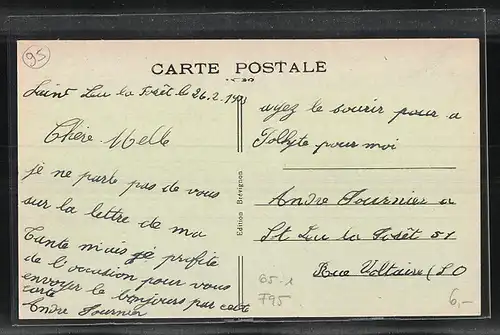 95
CARTE POSTALE
Saint Leu la Forêt le 26.2.19
Chère Melle
je ne parle pas de vous
sur la lettre de ma
Tante mais je profite
de l'occasion pour vous
envoyer le bonjours par cette
carte
Andre Fournier
Edition Brévignon
ayez le sourir pour a
pour moi
Andre Fournier a
St Leu la Forêt 51
Rue Voltaire (S O
65-1
795
6,-